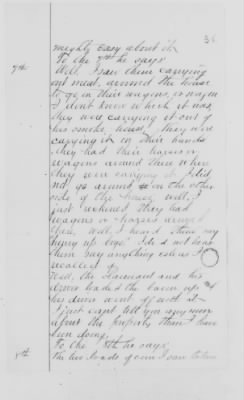 36
mighty easy about it.
7th To the 7th he says
Well, I saw them carrying
out meat, around the house
to go in their wagons, or wagon
I dont know which it was,
they were carrying it out of
his smoke house, they were
carrying it in their hands
they had their horses or
wagons around there where
they were carrying it I did
not go around on the other
side of the house, well, I
just reckoned they had
wagons or horses around
there, Well, I heard them say
hurry up boys. I did not hear
them say anything else as I
recollect of.
Well, the Claimant and his
driver loaded the bacon up, and
his driver went off with it.
I just cant tell you any more
about the property than I have
been doing.
8th To the 8th he says,
the two loads of corn I saw taken